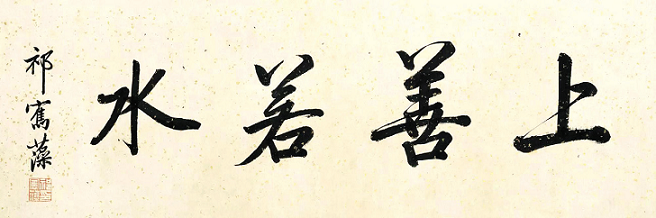 上善若水
祁寯藻